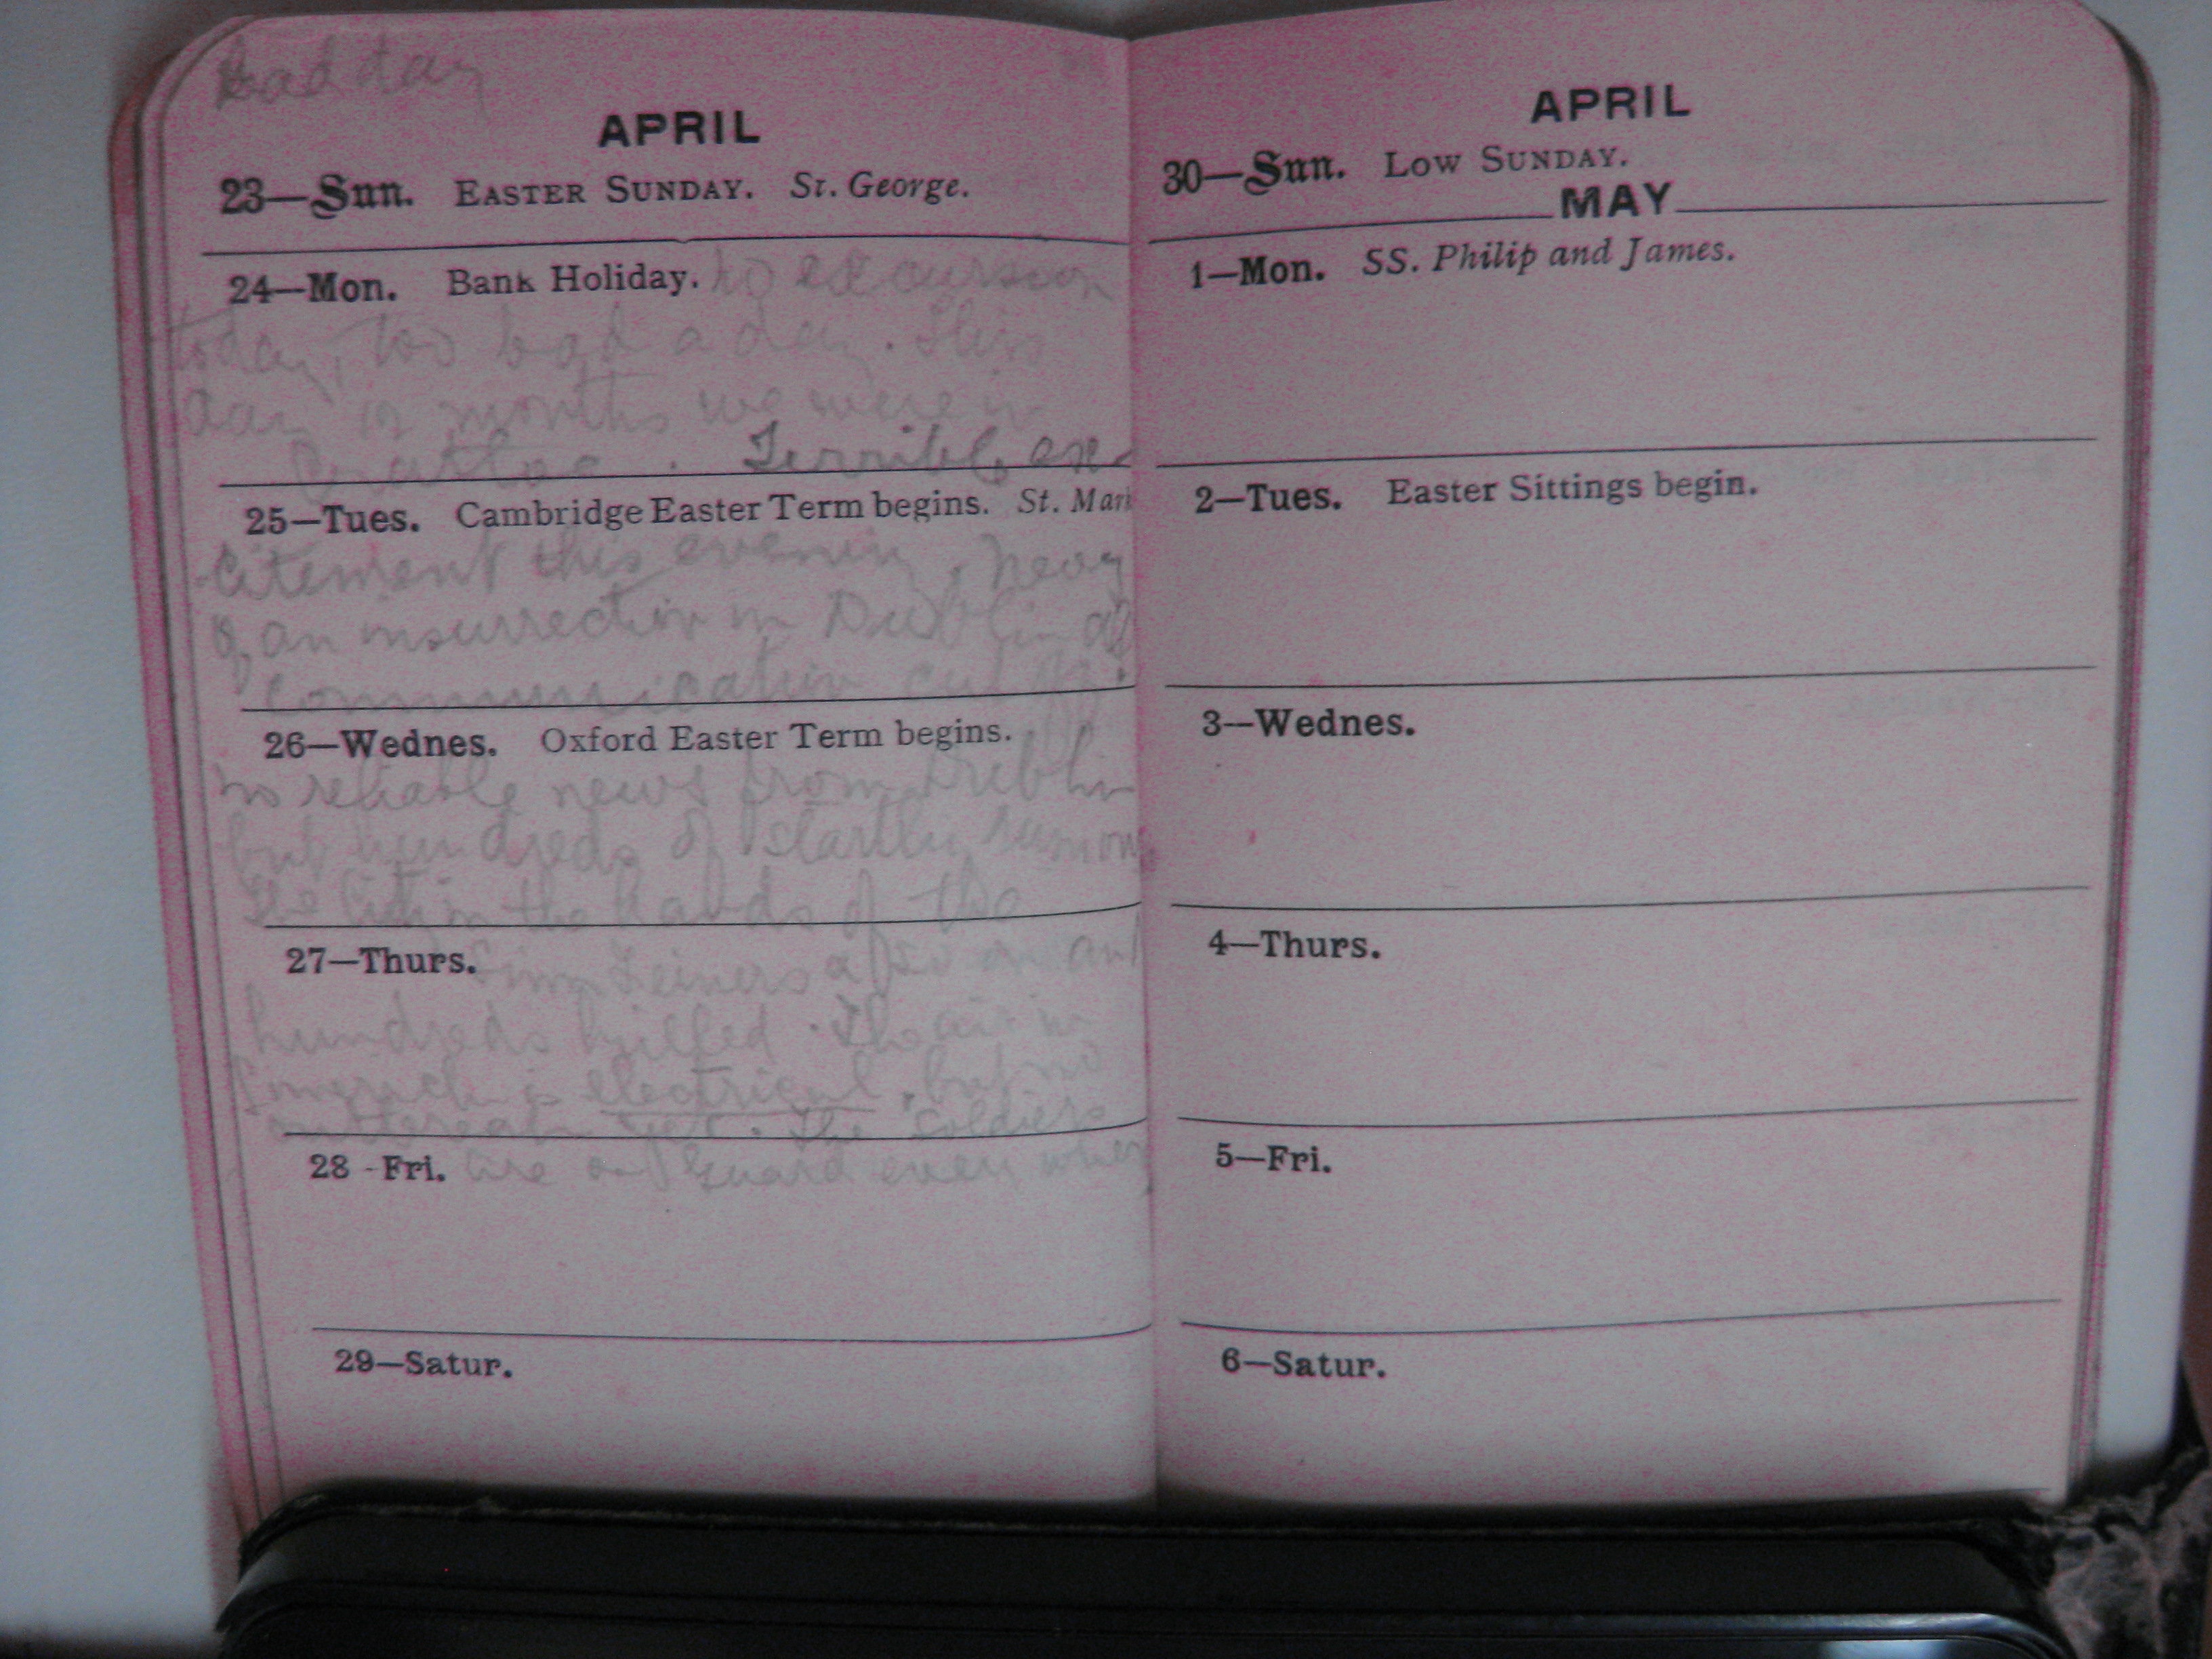 bad day
APRIL
23—Sun. EASTER SUNDAY. St. George.
24—Mon. Bank Holiday. No excursion
today, too bad a day. This
day 12 months we were in
Terrible ex-
25—Tues. Cambridge Easter Term begins. St. Mark
citement this evening, News
of an insurrection in Dublin all
communication cut off.
26—Wednes. Oxford Easter Term begins.
No reliable news from Dublin
but hundreds of startling rumours
The City in the hands of the
27—Thurs. Sinn Feiners also and
hundreds killed. The air in
Limerick is electrical, but no
outbreak yet. The soldiers
28-Fri. are on guard every where
29—Satur.
APRIL
30—Sun. LOW SUNDAY.
MAY
1—Mon. SS. Philip and James.
2—Tues. Easter Sittings begin.
3—Wednes.
4—Thurs.
5—Fri.
6—Satur.